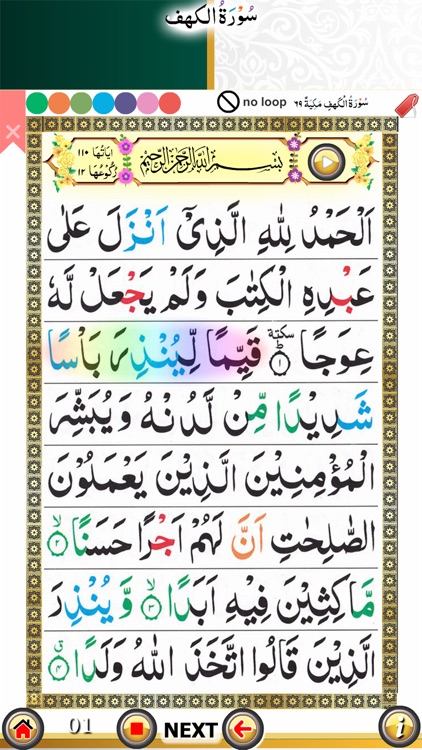 سُوْرَةُ الكهف
no loop سُوْرَةُ الْكَهْفِ مَكِّيَّةٌ ٦٩
اٰيَاتُهَا ١١٠
رُكُوْعُهَا ١٢
بِسْمِ اللّٰهِ الرَّحْمٰنِ الرَّحِيْمِ
اَلْحَمْدُ لِلّٰهِ الَّذِيْۤ اَنْزَلَ عَلٰى
عَبْدِهِ الْكِتٰبَ وَلَمْ يَجْعَلْ لَّهٗ
عِوَجًا سكتة ؕ ١ قَيِّمًا لِّيُنْذِرَ بَاْسًا
شَدِيْدًا مِّنْ لَّدُنْهُ وَيُبَشِّرَ
الْمُؤْمِنِيْنَ الَّذِيْنَ يَعْمَلُوْنَ
الصّٰلِحٰتِ اَنَّ لَهُمْ اَجْرًا حَسَنًا ۙ ٢
مَّاكِثِيْنَ فِيْهِ اَبَدًا ۙ ٣ وَّيُنْذِرَ
الَّذِيْنَ قَالُوا اتَّخَذَ اللّٰهُ وَلَدًا ق ٤
01 NEXT i